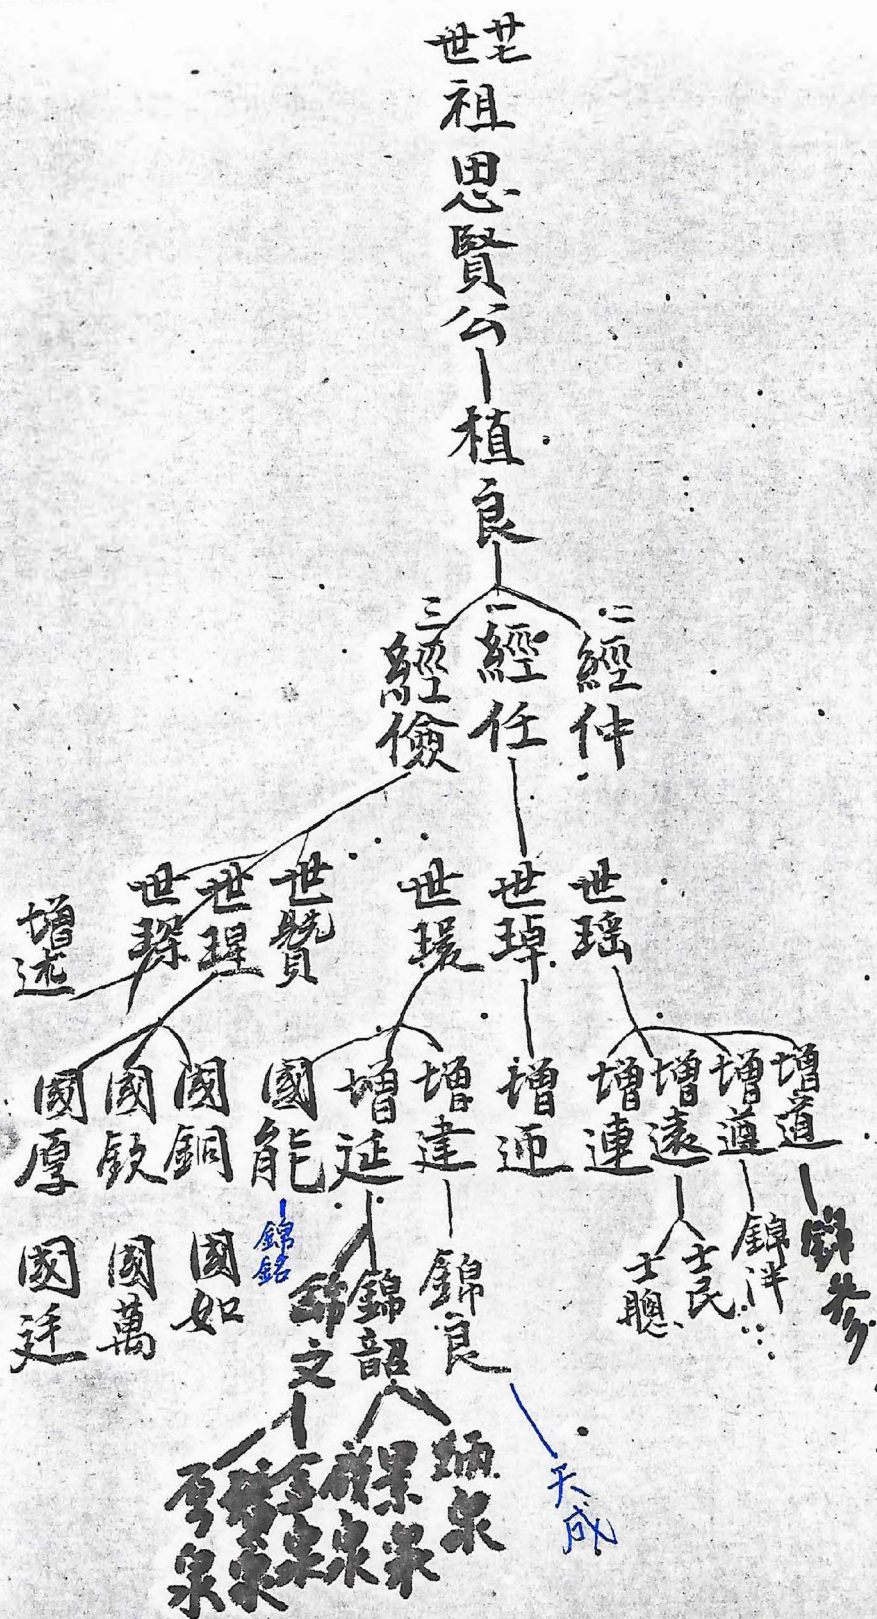 廿七世祖思賢公
植良
二 經仲
一 經任
三 經儉
世瑤
世琸
世環
世贊
世瑆
世琛
增述
增道
增遵
增遠
增連
增迊
增建
增延
國能
國銅
國欽
國厚
錦參
錦泮
士民
士聰
錦良
錦韶
錦文
錦銘
國如
國萬
國廷
天成
炳泉
景泉
成泉
金泉